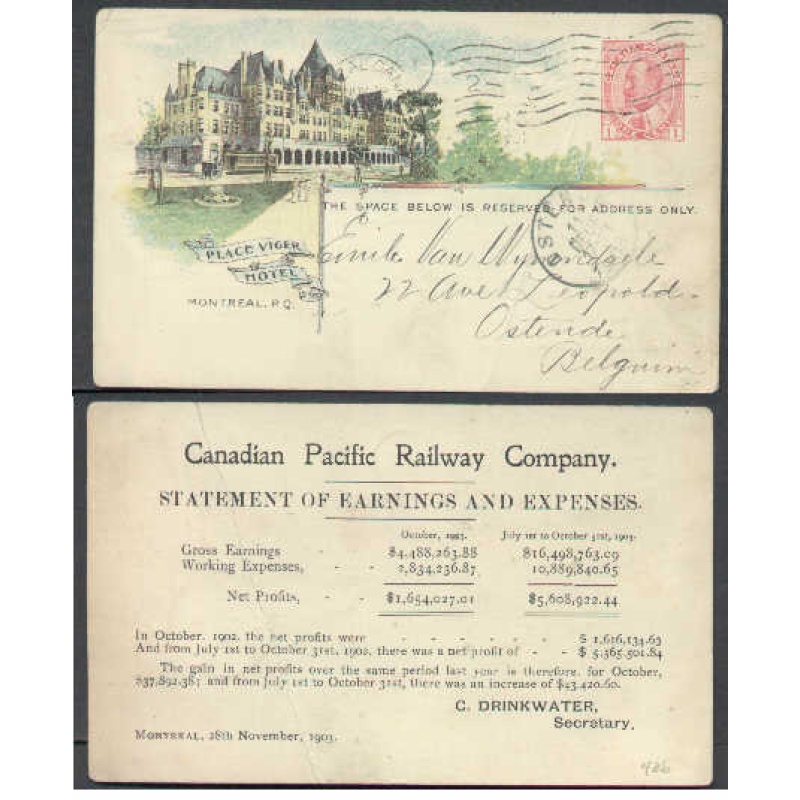 THE SPACE BELOW IS RESERVED FOR ADDRESS ONLY.
PLACE VIGER
HOTEL
MONTREAL, P.Q.
Emile Van
22 Ave Leopold
Ostende
Belguim
Canadian Pacific Railway Company.
STATEMENT OF EARNINGS AND EXPENSES.
October, 1903. July 1st to October 31st, 1903.
Gross Earnings - $4,488,263.88 $16,498,763.09
Working Expenses, - - 2,834,236.87 10,889,840.65
Net Profits, - - $1,654,027.01 $5,608,922.44
In October, 1902, the net profits were - - - - - - $ 1,616,134.63
And from July 1st to October 31st, 1902, there was a net profit of - - $ 5,565,501.84
The gain in net profits over the same period last year is therefore, for October,
$37,892.38; and from July 1st to October 31st, there was an increase of $43,420.60.
C. DRINKWATER,
Secretary.
MONTREAL, 28th November, 1903.